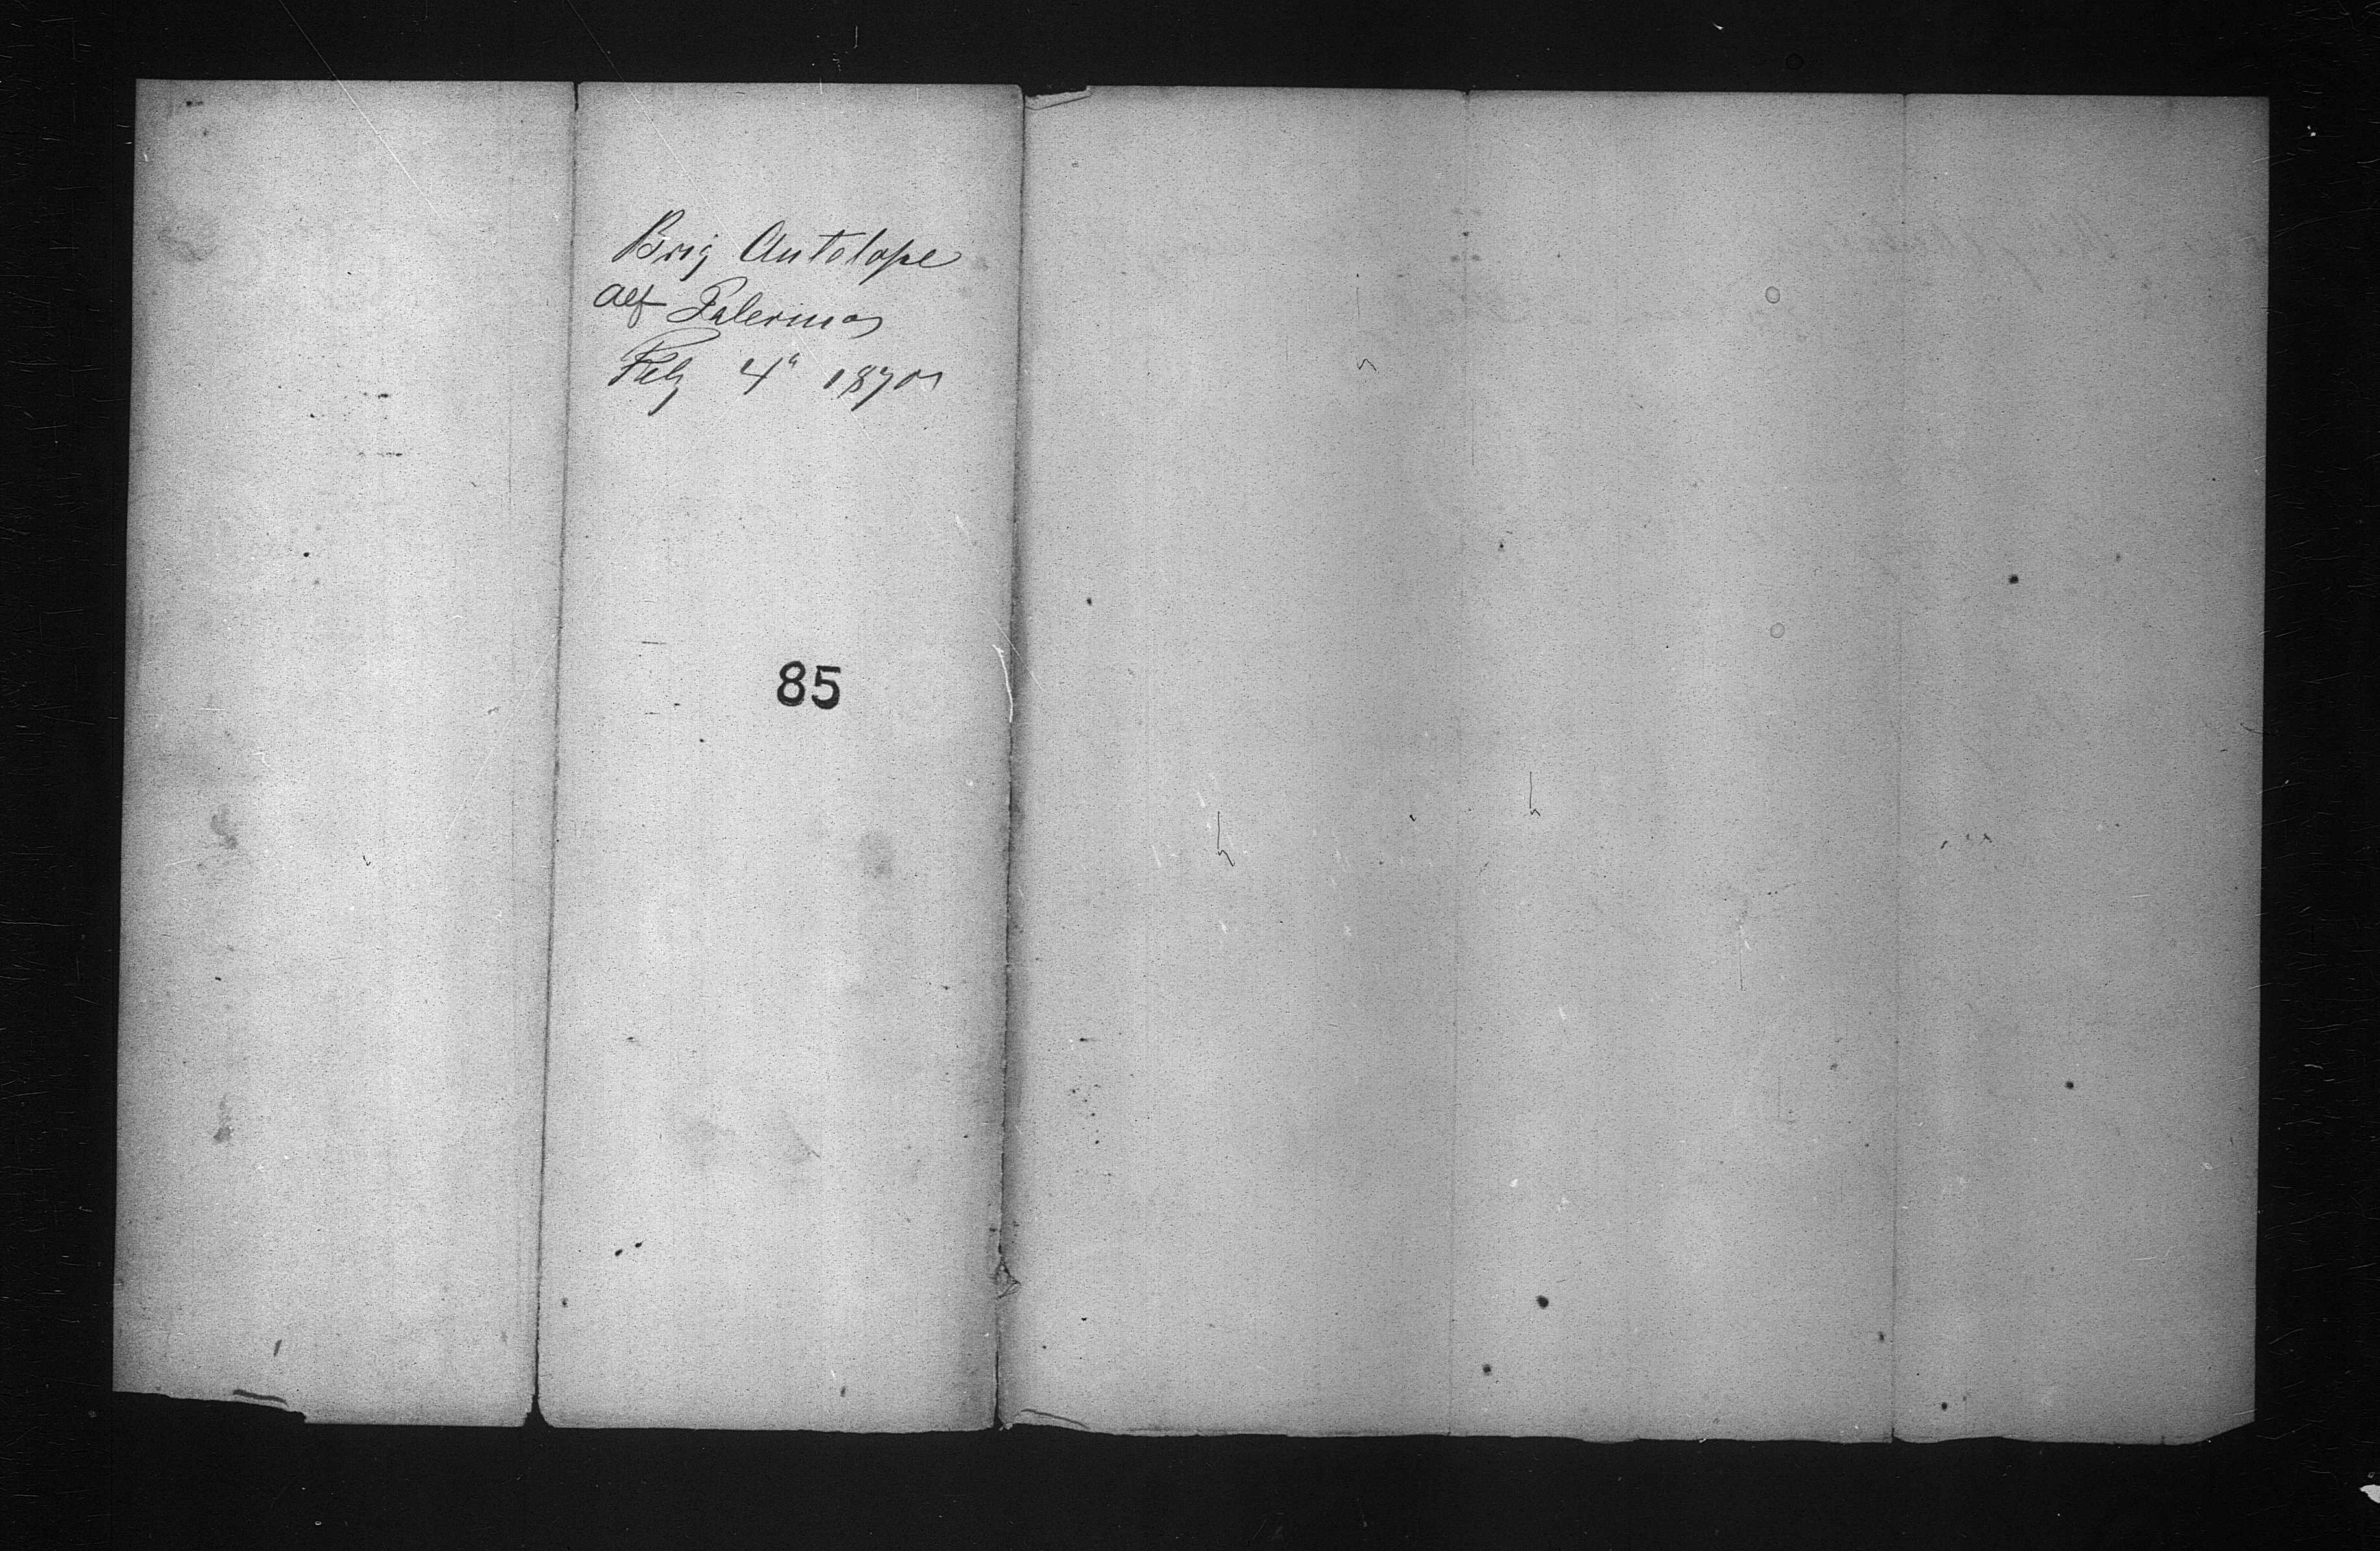 Brig Antelope
Palermo
Feby 4" 1870
85